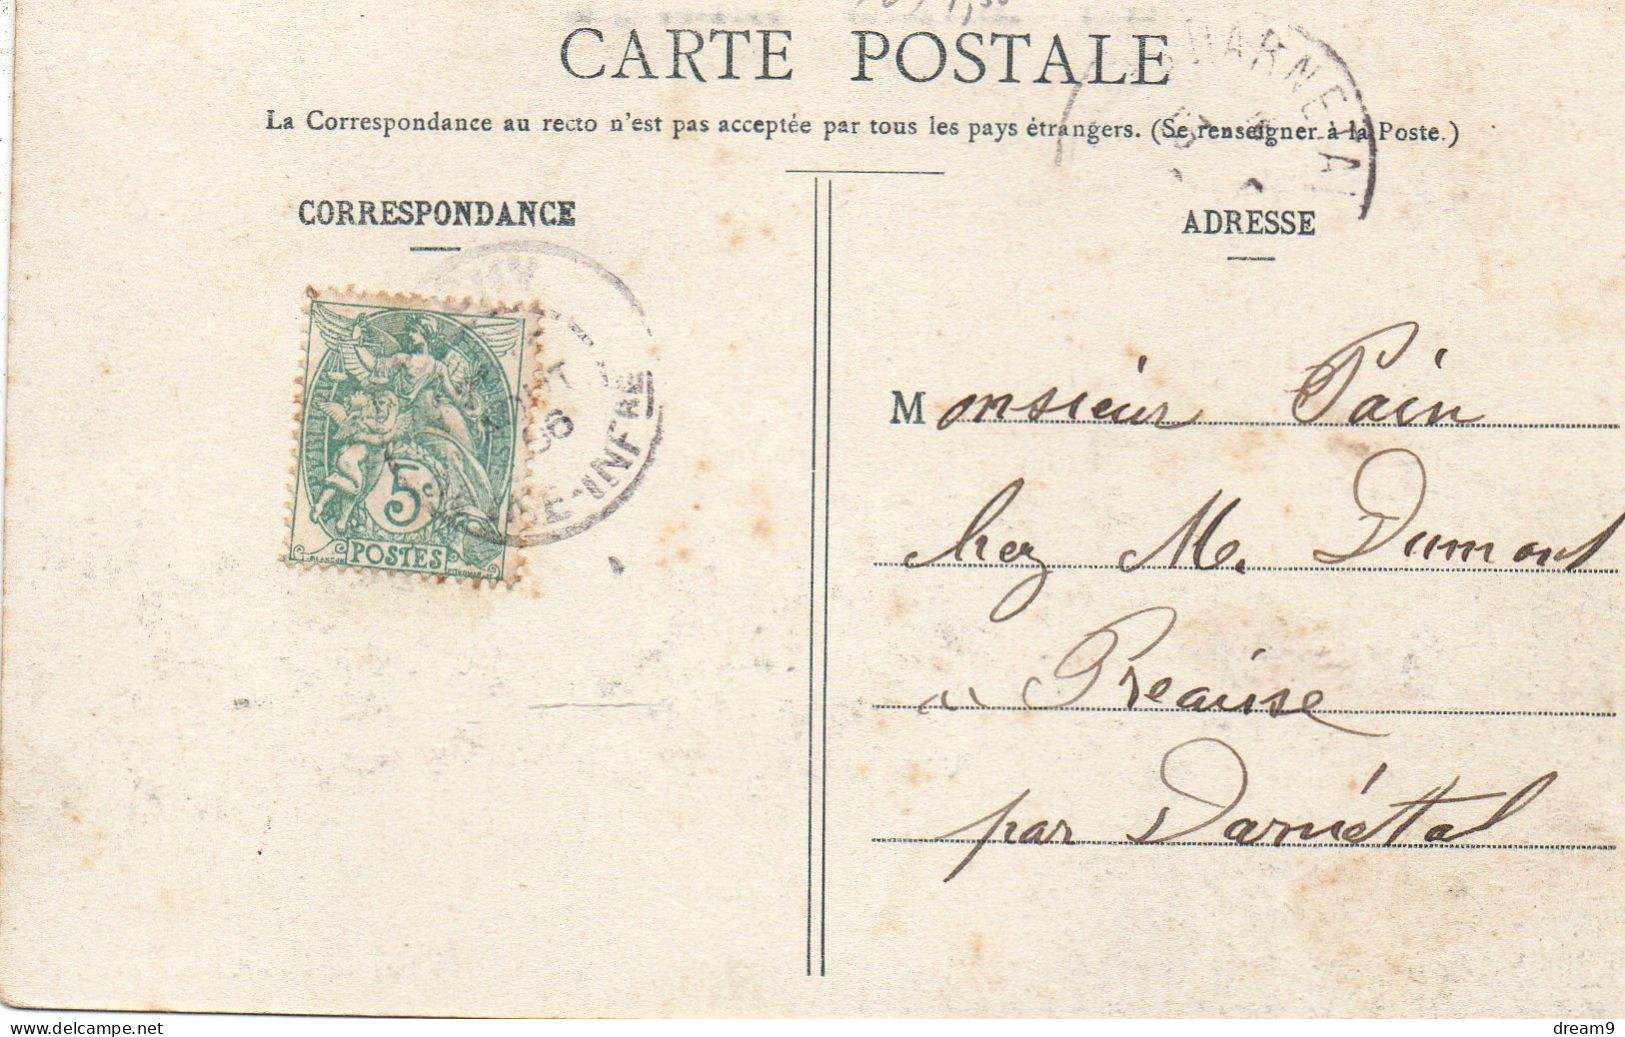 CARTE POSTALE
La Correspondance au recto n'est pas acceptée par tous les pays étrangers. (Se renseigner à la Poste.)
CORRESPONDANCE
ADRESSE
5c
POSTES
INFRE
06
Monsieur Pain
chez M. Dumont
a Preause
par Darnétal
delcampe.net
dream9